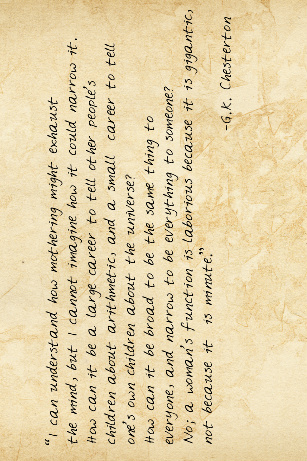 “I can understand how mothering might exhaust
the mind, but I cannot imagine how it could narrow it.
How can it be a large career to tell other people's
children about arithmetic, and a small career to tell
one's own children about the universe?
How can it be broad to be the same thing to
everyone, and narrow to be everything to someone?
No; a woman's function is laborious because it is gigantic,
not because it is minute.”
-G.K. Chesterton